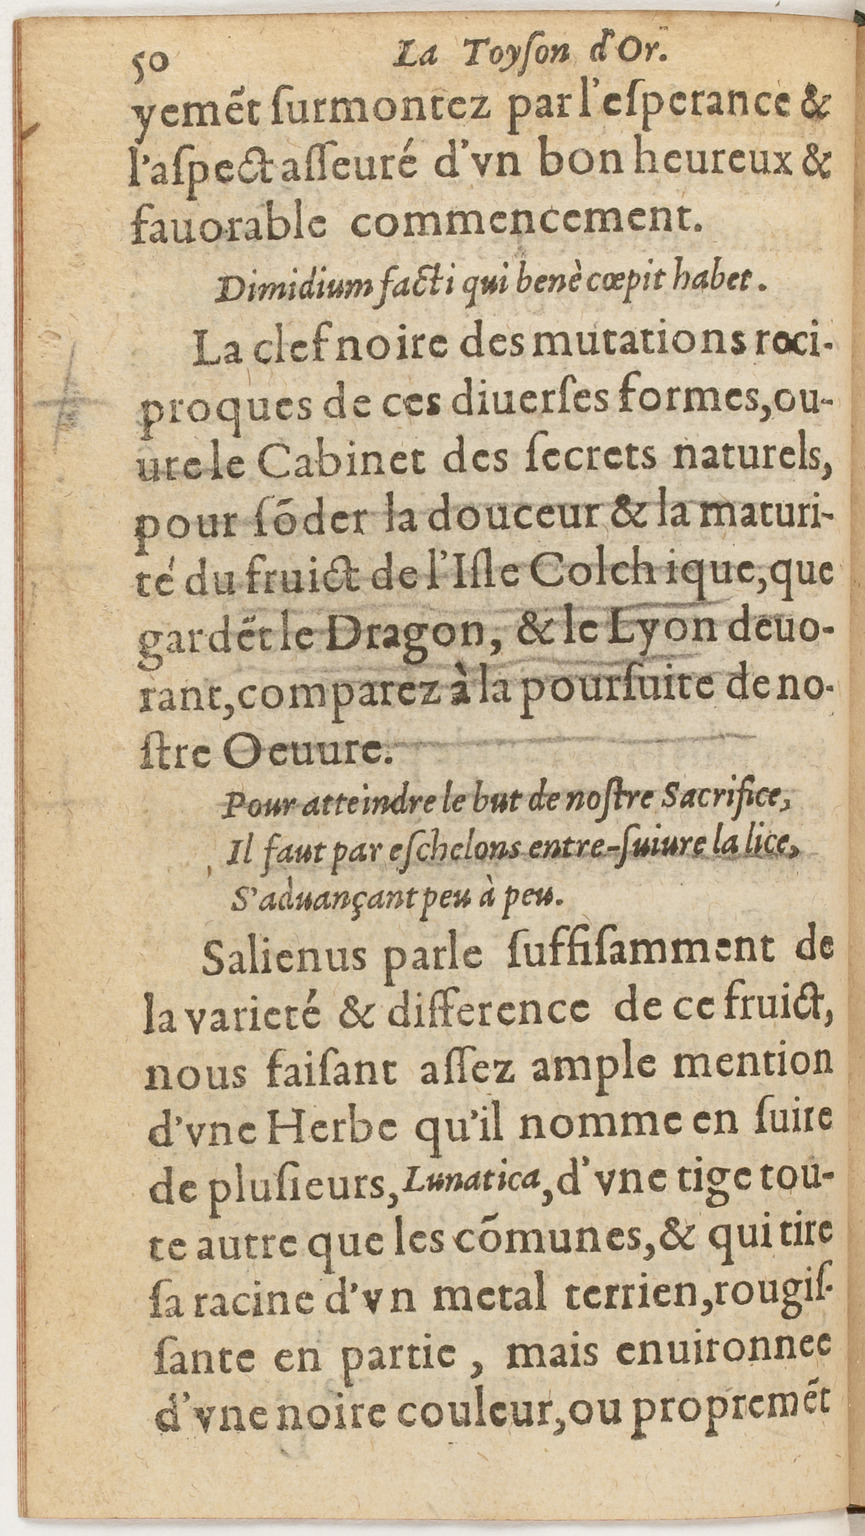 50 La Toyſon d'Or.
yemẽt ſurmontez par l'eſperance &
l'aſpect aſſeuré d'vn bon heureux &
fauorable commencement.
Dimidium facti qui benè cœpit habet.
La clef noire des mutations reci-
proques de ces diuerſes formes, ou-
ure le Cabinet des ſecrets naturels,
pour ſõder la douceur & la maturi-
té du fruict de l'Iſle Colchique, que
gardẽt le Dragon, & le Lyon deuo-
rant, comparez à la pourſuite de no-
ſtre Oeuure.
Pour atteindre le but de noſtre Sacrifice,
Il faut par eſchelons entre-ſuiure la lice,
S'aduançant peu à peu.
Salienus parle ſuffiſamment de
la varieté & difference de ce fruict,
nous faiſant aſſez ample mention
d'vne Herbe qu'il nomme en ſuite
de pluſieurs, Lunatica, d'vne tige tou-
te autre que les cõmunes, & qui tire
ſa racine d'vn metal terrien, rougiſ-
ſante en partie, mais enuironnee
d'vne noire couleur, ou propremẽt